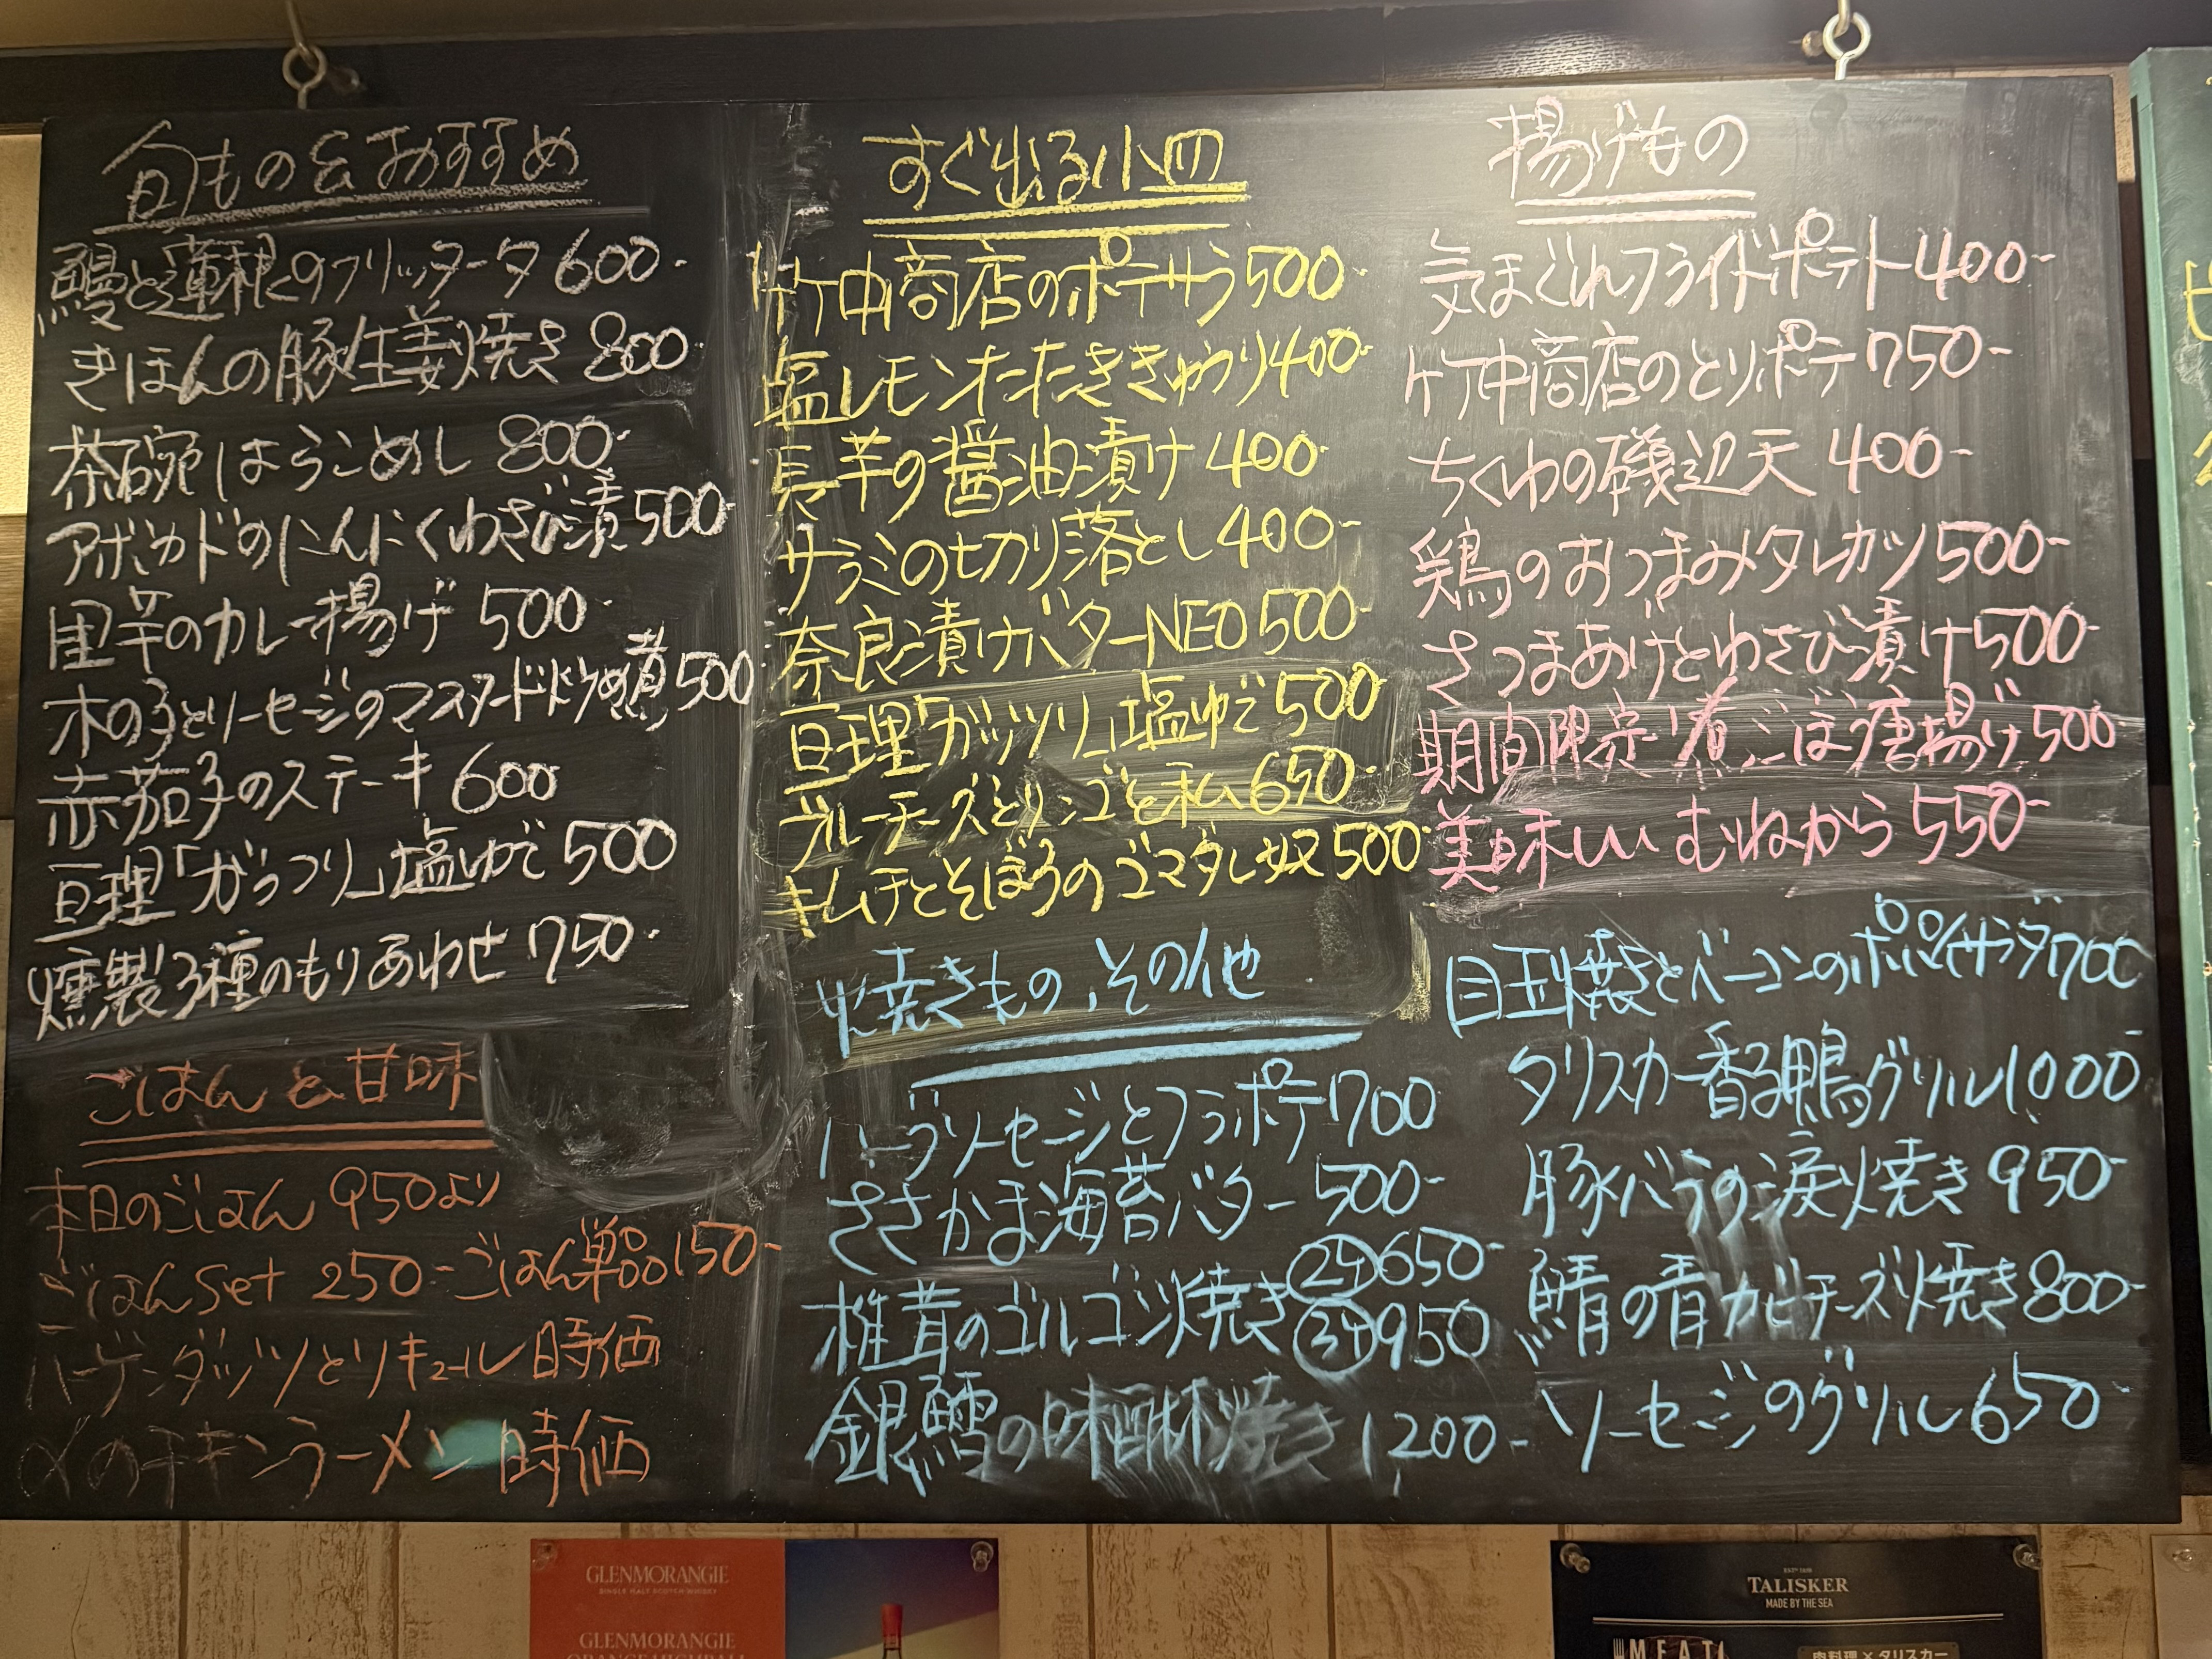 旬もの&おすすめ
鰻と蓮根のフリッタータ 600-
きほんの豚生姜焼き 800-
茶碗はらこめし 800-
アボカドのにんにくわさび漬 500-
里芋のカレー揚げ 500-
木の子とソーセージのマスタード煮 500
赤茄子のステーキ 600
亘理「がっつり」塩ゆで 500
燻製3種のもりあわせ 750-
ごはんと甘味
本日のごはん 950より
ごはんset 250-ごはん単品150-
ハーゲンダッツとリキュール 時価
〆のチキンラーメン 時価
すぐ出る小皿
竹中商店のポテサラ 500-
塩レモンたたききゅうり400-
長芋の醤油漬け 400-
サラミの切り落とし400-
奈良漬けバターNEO 500-
亘理「ガッツリ」塩ゆで 500
ブルーチーズとリンゴと私 650-
キムチとそぼろのゴマダレ奴 500-
揚げもの
気まぐれフライドポテト400-
竹中商店のとりポテ 750-
ちくわの磯辺天 400-
鶏のおつまみタレカツ 500-
さつまあげとわさび漬け500-
期間限定 煮ごぼう唐揚げ500-
美味しい むねから 550-
焼きもの、その他
ハーブソーセージとフラポテ 700
ささかま海苔バター 500-
椎茸のゴルゴンゾ焼き ②ケ650-
③ケ950
銀鱈の味醂焼き 1200-
目玉焼きとベーコンのポパイサラダ700-
タリスカー香る鴨グリル1000-
豚バラの涙焼き 950-
鯖の青カビチーズ焼き800-
ソーセージのグリル 650-
GLENMORANGIE
SINGLE MALT SCOTCH WHISKY
GLENMORANGIE
TALISKER
MADE BY THE SEA
MEAT
肉料理×タリスカー